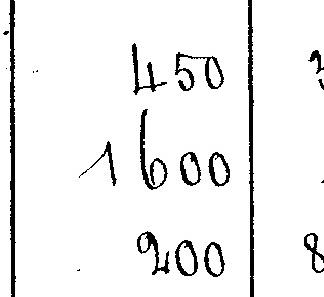 450
1600
200 8